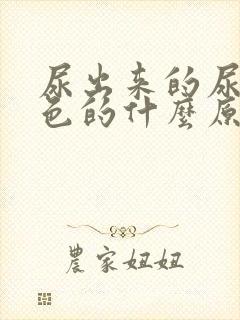 尿出来的尿
色的什麼原
農家妞妞